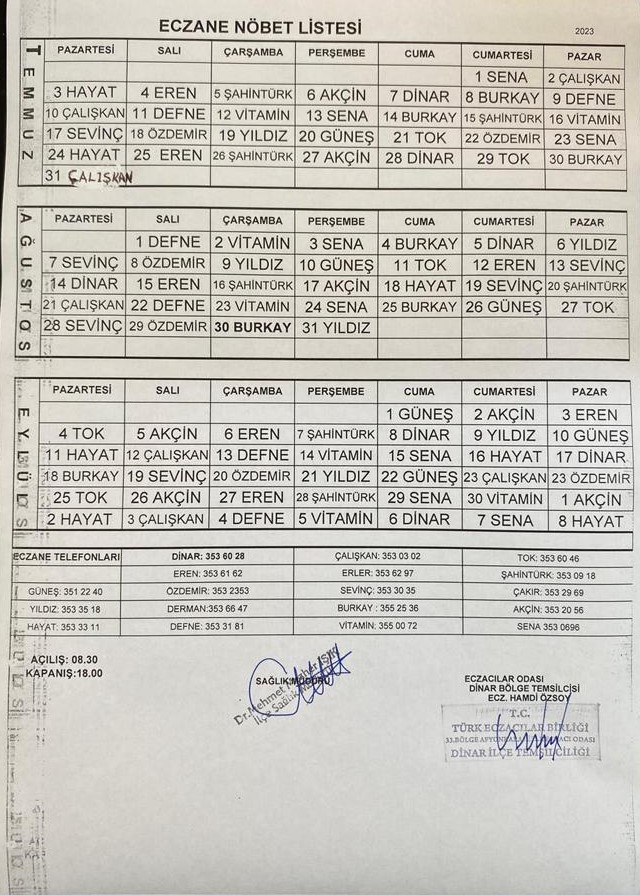 ECZANE NÖBET LİSTESİ
2023
TEMMUZ
PAZARTESİ SALI ÇARŞAMBA PERŞEMBE CUMA CUMARTESİ PAZAR
1 SENA 2 ÇALIŞKAN
3 HAYAT 4 EREN 5 ŞAHİNTÜRK 6 AKÇİN 7 DİNAR 8 BURKAY 9 DEFNE
10 ÇALIŞKAN 11 DEFNE 12 VİTAMİN 13 SENA 14 BURKAY 15 ŞAHİNTÜRK 16 VİTAMİN
17 SEVİNÇ 18 ÖZDEMİR 19 YILDIZ 20 GÜNEŞ 21 TOK 22 ÖZDEMİR 23 SENA
24 HAYAT 25 EREN 26 ŞAHİNTÜRK 27 AKÇİN 28 DİNAR 29 TOK 30 BURKAY
31 ÇALIŞKAN
AĞUSTOS
PAZARTESİ SALI ÇARŞAMBA PERŞEMBE CUMA CUMARTESİ PAZAR
1 DEFNE 2 VİTAMİN 3 SENA 4 BURKAY 5 DİNAR 6 YILDIZ
7 SEVİNÇ 8 ÖZDEMİR 9 YILDIZ 10 GÜNEŞ 11 TOK 12 EREN 13 SEVİNÇ
14 DİNAR 15 EREN 16 ŞAHİNTÜRK 17 AKÇİN 18 HAYAT 19 SEVİNÇ 20 ŞAHİNTÜRK
21 ÇALIŞKAN 22 DEFNE 23 VİTAMİN 24 SENA 25 BURKAY 26 GÜNEŞ 27 TOK
28 SEVİNÇ 29 ÖZDEMİR 30 BURKAY 31 YILDIZ
EYLÜL
PAZARTESİ SALI ÇARŞAMBA PERŞEMBE CUMA CUMARTESİ PAZAR
1 GÜNEŞ 2 AKÇİN 3 EREN
4 TOK 5 AKÇİN 6 EREN 7 ŞAHİNTÜRK 8 DİNAR 9 YILDIZ 10 GÜNEŞ
11 HAYAT 12 ÇALIŞKAN 13 DEFNE 14 VİTAMİN 15 SENA 16 HAYAT 17 DİNAR
18 BURKAY 19 SEVİNÇ 20 ÖZDEMİR 21 YILDIZ 22 GÜNEŞ 23 ÇALIŞKAN 23 ÖZDEMİR
25 TOK 26 AKÇİN 27 EREN 28 ŞAHİNTÜRK 29 SENA 30 VİTAMİN 1 AKÇİN
2 HAYAT 3 ÇALIŞKAN 4 DEFNE 5 VİTAMİN 6 DİNAR 7 SENA 8 HAYAT
ECZANE TELEFONLARI DİNAR: 353 60 28 ÇALIŞKAN: 353 03 02 TOK: 353 60 46
EREN: 353 61 62 ERLER: 353 62 97 ŞAHİNTÜRK: 353 09 18
GÜNEŞ: 351 22 40 ÖZDEMİR: 353 2353 SEVİNÇ: 353 30 35 ÇAKIR: 353 29 69
YILDIZ: 353 35 18 DERMAN:353 66 47 BURKAY : 355 25 36 AKÇİN: 353 20 56
HAYAT: 353 33 11 DEFNE: 353 31 81 VİTAMİN: 355 00 72 SENA 353 0696
AÇILIŞ: 08.30
KAPANIŞ:18.00
SAĞLIK MÜDÜRÜ
Dr.Mehmet
İlçe Sağlık
ECZACILAR ODASI
DİNAR BÖLGE TEMSİLCİSİ
ECZ. HAMDİ ÖZSOY
T.C.
TÜRK ECZACILAR BİRLİĞİ
33.BÖLGE ODASI
DİNAR İLÇE TEMSİLCİLİĞİ